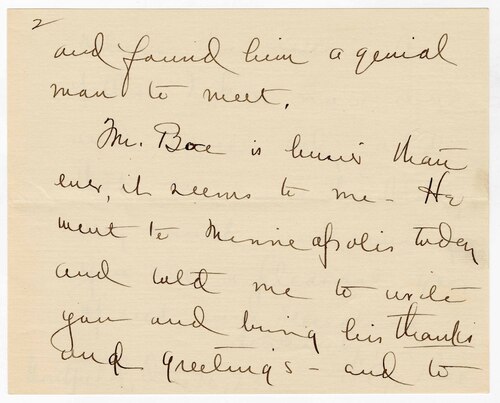 2
and found him a genial
man to meet.
Mr. Boe is busier than
ever, it seems to me - He
went to Minneapolis today
and told me to write
you and bring his thanks
and greetings - and to